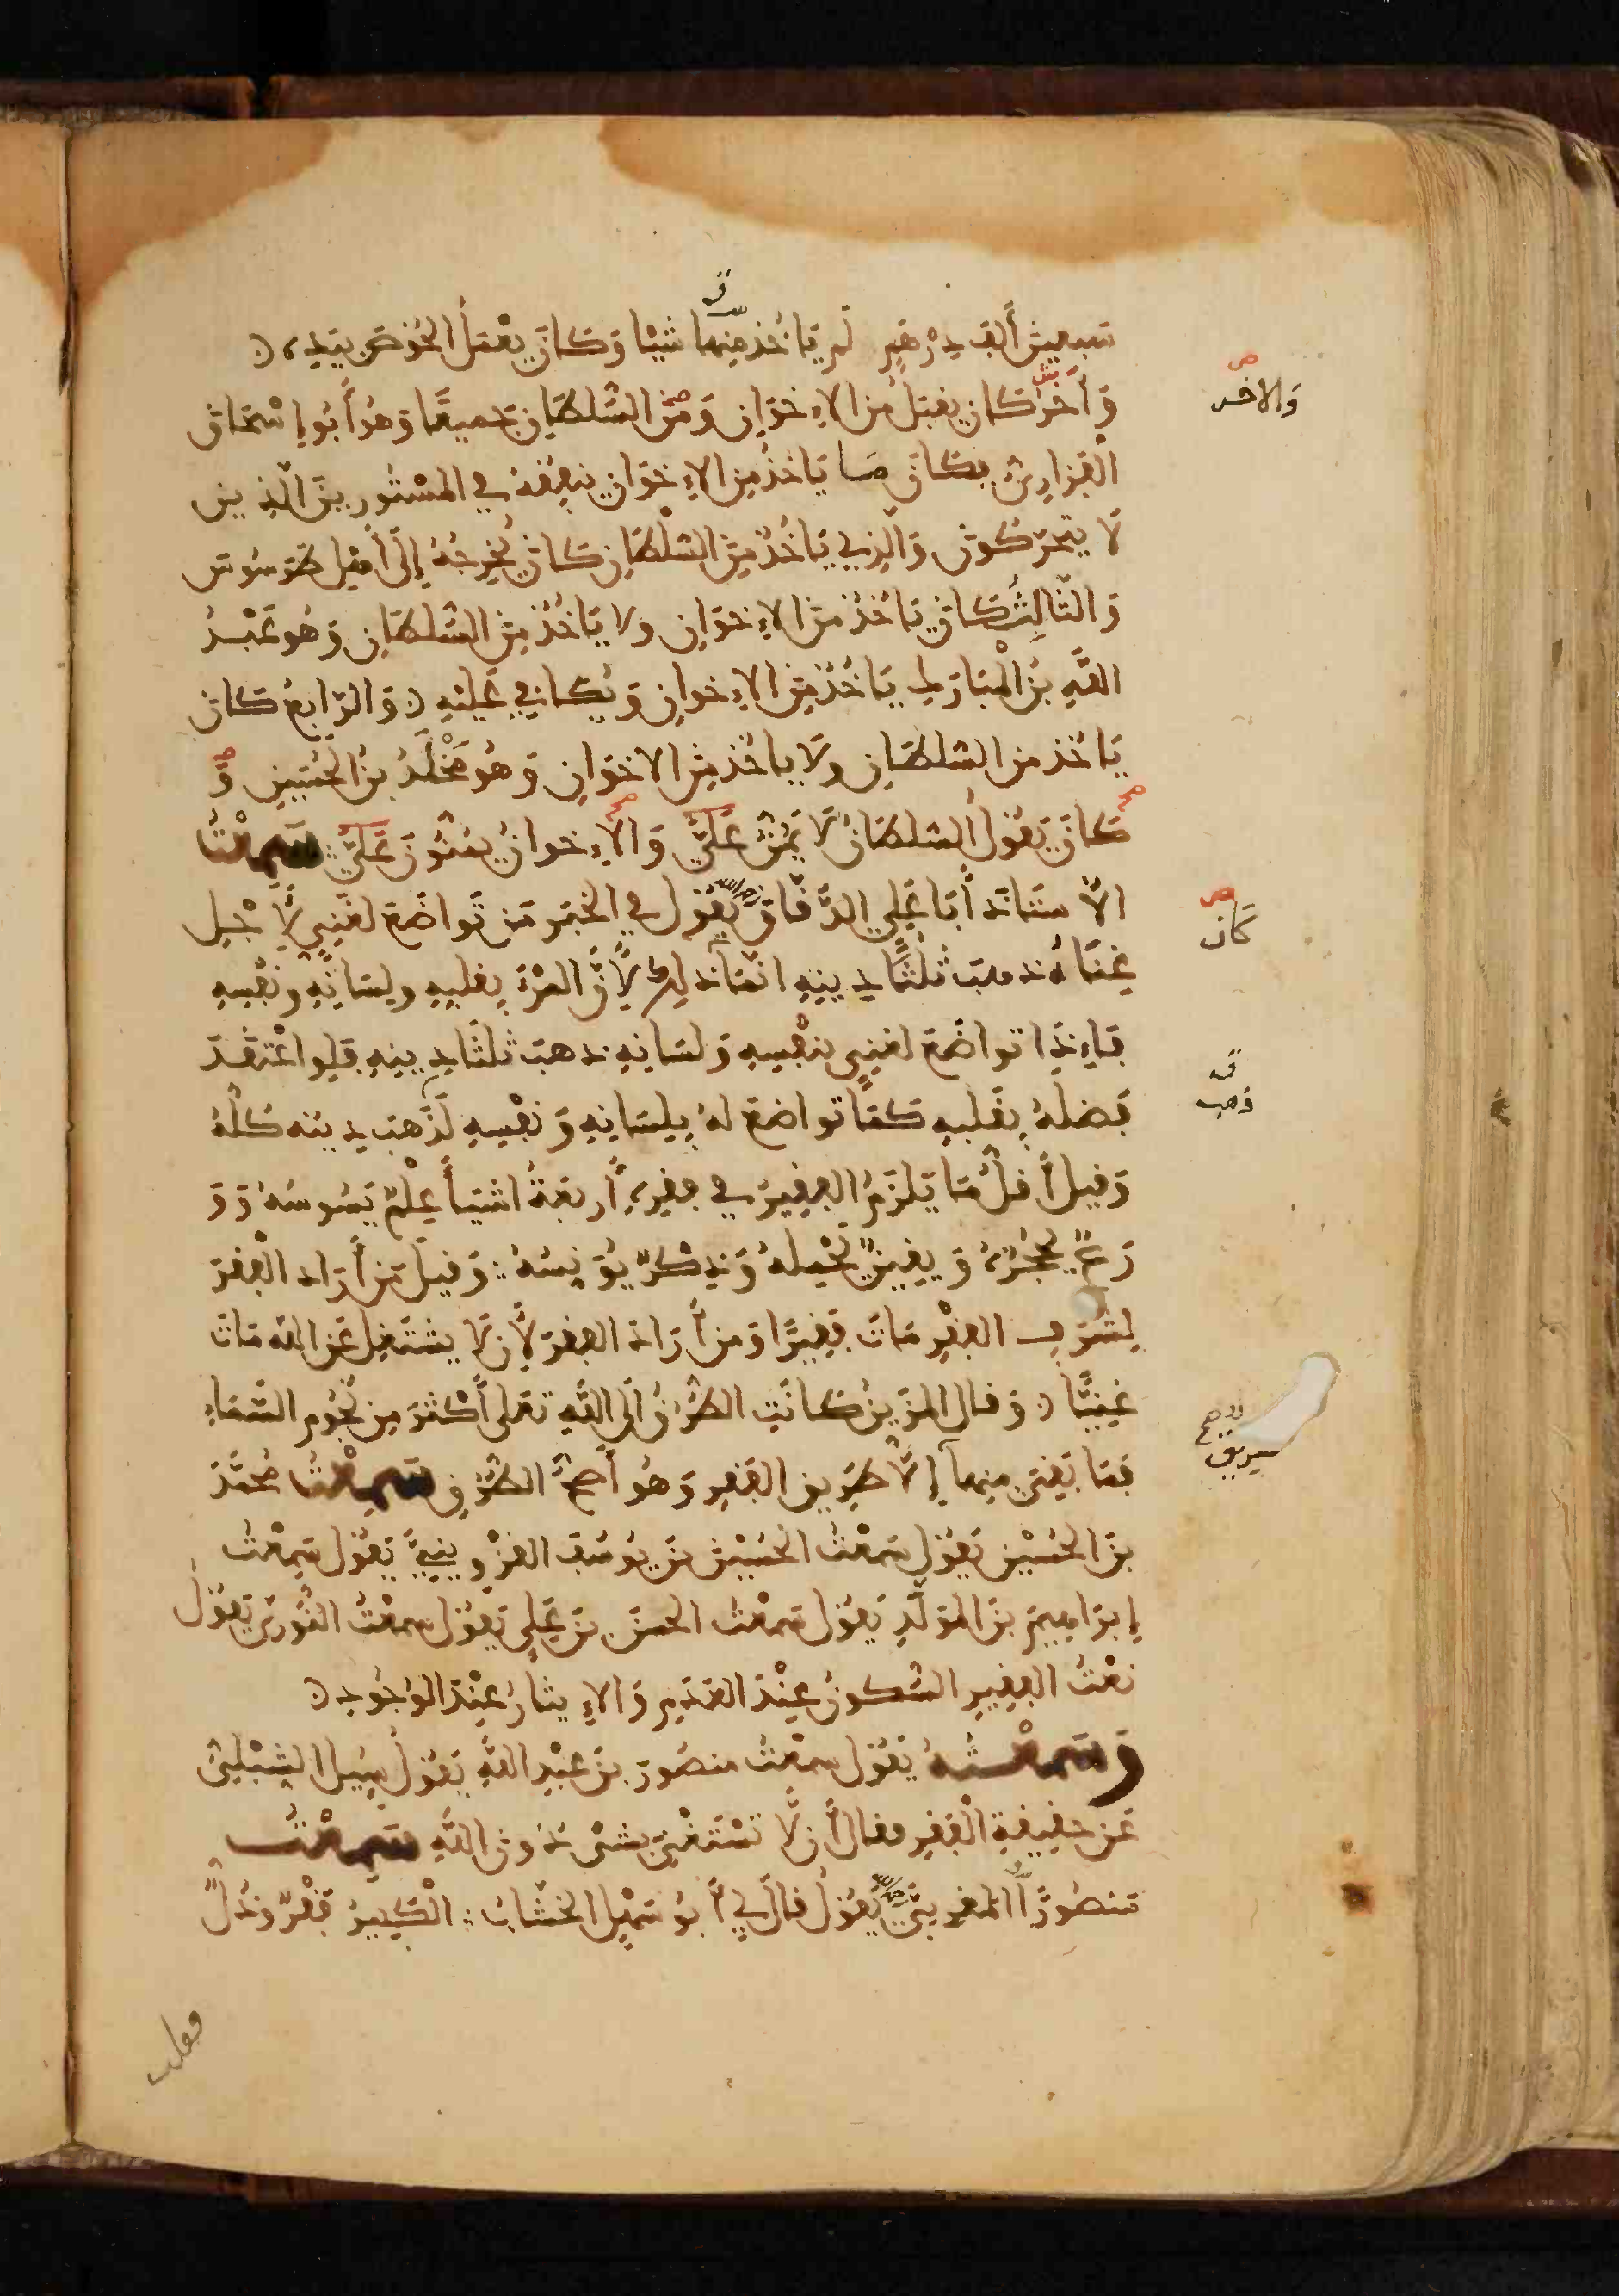 سبعين ألف درهم لم يأخذ منها شيئا وكان يعمل الخوص بيده
وآخر كان يقبل من الإخوان ومن السلطان جميعا وهو أبو إسحاق
الفزاري فكان ما يأخذ من الإخوان ينفقه في المستورين الذين
لا يتحركون والذي يأخذ من السلطان كان يخرجه إلى أهل طرسوس
والثالث كان يأخذ من الإخوان ولا يأخذ من السلطان وهو عبد
الله بن المبارك يأخذ من الإخوان ويكافي عليه والرابع كان
يأخذ من السلطان ولا يأخذ من الاخوان وهو مخلد بن الحسين و
كان يقول السلطان لا يمن علي والإخوان يمنون علي سمعت
الأستاذ أبا علي الدقاق رحمه الله يقول في الخبر من تواضع لغني لأجل
غناه ذهب ثلثا دينه انما ذلك لأن المرء بقلبه ولسانه ونفسه
فإذا تواضع لغني بنفسه ولسانه ذهب ثلثا دينه فلو اعتقد
فضله بقلبه كما تواضع له بلسانه ونفسه لذهب دينه كله
وقيل أقل ما يلزم الفقير في فقره أربعة اشيا علم يسوسه وو
رع يحجزه ويقين يحمله وذكر يؤنسه وقيل من أراد الفقر
لشرف الفقر مات فقيرا ومن أراد الفقر لأن لا يشتغل عن الله مات
غنيا وقال المزين كانت الطرق الى الله تعلى أكثر من نجوم السماء
فما بقي منها إلا طريق الفقر وهو أصح الطرق سمعت محمد
بن الحسين يقول سمعت الحسين بن يوسف القزويني يقول سمعت
إبراهيم بن المولد يقول سمعت الحسن بن علي يقول سمعت النوري يقول
نعت الفقير السكون عند العدم والإيثار عند الوجود
وسمعته يقول سمعت منصور بن عبد الله يقول سيل الشبلي
عن حقيقة الفقر فقال أن لا تستغني بشي دون الله سمعت
منصورا المغربي رحمه الله يقول قال لي أبو سهل الخشاب الكبير فقر وذل
والاخر
كان
ق
ذهب
طريق
فقلت